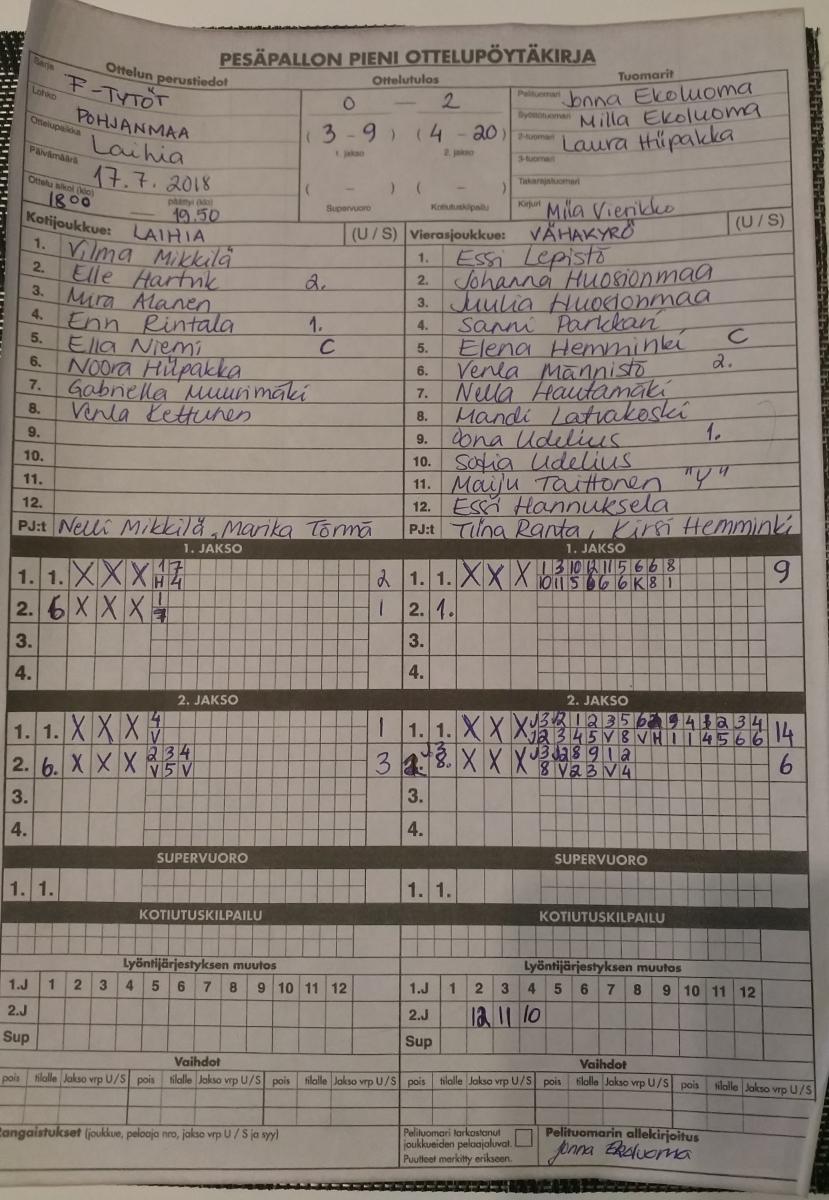 PESÄPALLON PIENI OTTELUPÖYTÄKIRJA
Ottelun perustiedot
Sarja F-TYTÖT
Lohko POHJANMAA
Ottelupaikka Laihia
Päivämäärä 17.7.2018
Ottelu alkoi (klo) päättyi (klo)
1800 — 19.50
Ottelutulos
0 — 2
(3 - 9) (4 - 20)
1. jakso 2. jakso
( - ) ( - )
Supervuoro Kotiutuskilpailu
Tuomarit
Pelituomari Jonna Ekoluoma
Syöttötuomari Milla Ekoluoma
2-tuomari Laura Hiipakka
3-tuomari
Takarajatuomari
Kirjuri Miia Vierikko
Kotijoukkue: LAIHIA (U / S)
1. Vilma Mikkilä
2. Elle 2.
3. Mira Alanen
4. Enn Rintala 1.
5. Ella Niemi C
6. Noora Hiipakka
7. Gabriella Muurimäki
8. Venla Kettunen
9.
10.
11.
12.
PJ:t Nelli Mikkilä, Marika Törmä
Vierasjoukkue: VÄHÄKYRÖ (U / S)
1. Essi Lepistö
2. Johanna Huosionmaa
3. Juulia Huosionmaa
4. Sanni Parkkari
5. Elena Hemminki C
6. Venla Männistö 2.
7. Nella Hautamäki
8. Mandi Latvakoski
9. Oona Udelius 1.
10. Sofia Udelius
11. Maiju Taittonen "Y"
12. Essi Hannuksela
PJ:t Tiina Ranta, Kirsi Hemminki
1. JAKSO
1. 1. X X X 1 7 2
H 4
2. 6 X X X 1 1
7
3.
4.
1. JAKSO
1. 1. X X X 1 3 10 12 11 5 6 6 8 9
10 11 5 6 6 6 K 8 1
2. 1.
3.
4.
2. JAKSO
1. 1. X X X 4 1
V
2. 6. X X X 2 3 4 3
V 5 V
3.
4.
2. JAKSO
1. 1. X X X 14
2. 8. X X X 6
8 V 2 3 V 4
3.
4.
SUPERVUORO
1. 1.
SUPERVUORO
1. 1.
KOTIUTUSKILPAILU
KOTIUTUSKILPAILU
Lyöntijärjestyksen muutos
1.J 1 2 3 4 5 6 7 8 9 10 11 12
2.J
Sup
Lyöntijärjestyksen muutos
1.J 1 2 3 4 5 6 7 8 9 10 11 12
2.J 12 11 10
Sup
Vaihdot
pois tilalle Jakso vrp U/S pois tilalle Jakso vrp U/S pois tilalle Jakso vrp U/S
Vaihdot
pois tilalle Jakso vrp U/S pois tilalle Jakso vrp U/S pois tilalle Jakso vrp U/S
angaistukset (joukkue, pelaaja nro, jakso vrp U / S ja syy)
Pelituomari tarkastanut
joukkueiden pelaajaluvat.
Puutteet merkitty erikseen.
Pelituomarin allekirjoitus
Jonna Ekoluoma